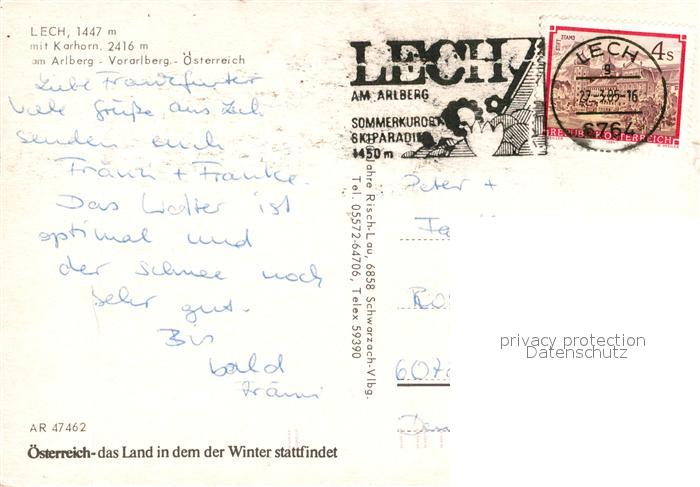 LECH, 1447 m
mit Karhorn, 2416 m
am Arlberg - Vorarlberg - Österreich
Liebe Frankfurter
viele Grüße aus Lech
senden euch
Fränzi + Franke.
Das Wetter ist
optimal und
der Schnee noch
sehr gut.
Bis
bald
Fränzi
AR 47462
Österreich - das Land in dem der Winter stattfindet
LECH
AM ARLBERG
SOMMERKURORT
SKIPARADIES
1450 m
STIFT STAMS
4 S
REPUBLIK ÖSTERREICH
LECH
9
27.-3.85-16
6764
Risch-Lau, 6858 Schwarzach-Vlbg.
Tel. 05572-64706, Telex 59390
Peter +
privacy protection
Datenschutz